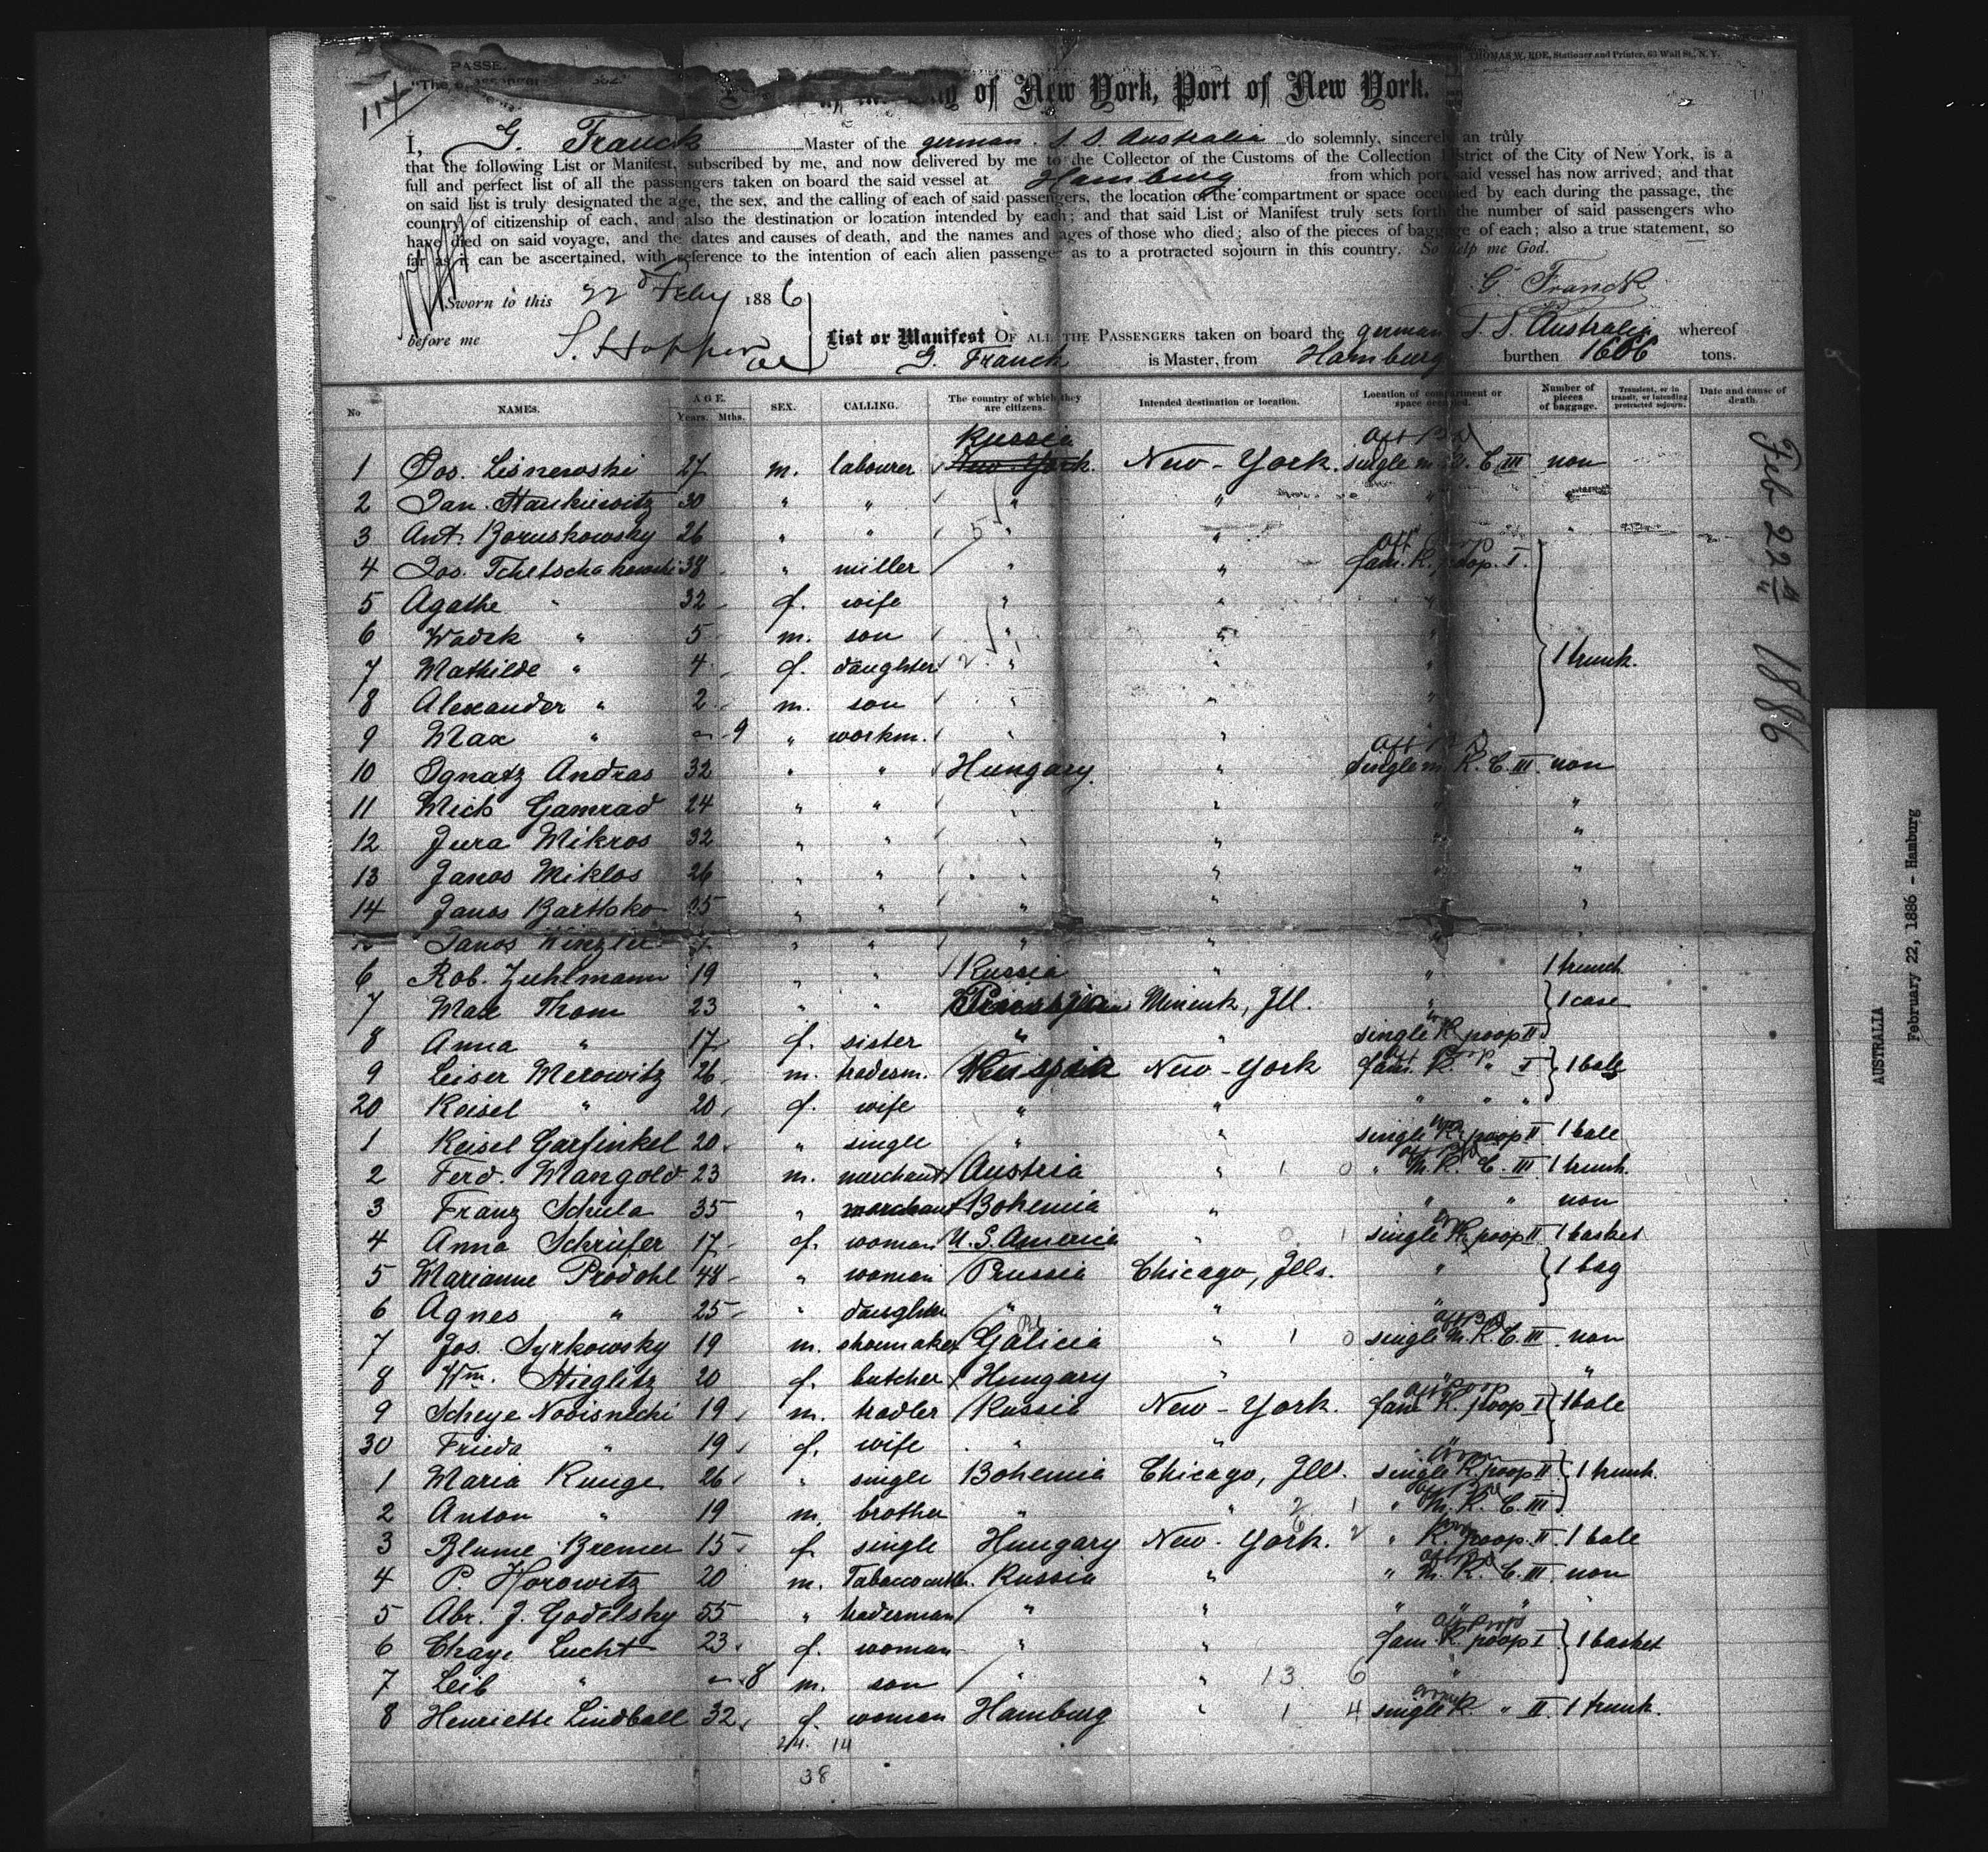 114
PASSE
"The
of New York, Port of New York.
THOMAS W. ROE, Stationer and Printer, 63 Wall St., N. Y.
I, G. Franck Master of the german S. S. Australia do solemnly, sincerely an truly
that the following List or Manifest, subscribed by me, and now delivered by me to the Collector of the Customs of the Collection District of the City of New York, is a
full and perfect list of all the passengers taken on board the said vessel at Hamburg from which port said vessel has now arrived; and that
on said list is truly designated the age, the sex, and the calling of each of said passengers, the location of the compartment or space occupied by each during the passage, the
country of citizenship of each, and also the destination or location intended by each; and that said List or Manifest truly sets forth the number of said passengers who
have died on said voyage, and the dates and causes of death, and the names and ages of those who died; also of the pieces of baggage of each; also a true statement, so
far as it can be ascertained, with reference to the intention of each alien passenger as to a protracted sojourn in this country. So help me God.
G. Franck
Sworn to this 22d Feby 1886
before me
List or Manifest OF ALL THE PASSENGERS taken on board the german S. S. Australia whereof
G. Franck is Master, from Hamburg burthen 1606 tons.
No NAMES. AGE. Years. Mths. SEX. CALLING. The country of which they are citizens. Intended destination or location. Location of compartment or space occupied. Number of pieces of baggage. Transient, or in transit, or intending protracted sojourn. Date and cause of death.
Russia
1 Jos. Lisnewski 27 m. labourer New-York. New-York. single m. C. III non
2 Jan. Staukuwitz 30 " " " "
3 Ant. Boruskowsky 26 " " " " "
4 Jos. Tchetschakowski 38 " miller " " fam. K. poop. I.
5 Agathe " 32 f. wife " " "
6 Wadek " 5 m. son " " "
7 Mathilde " 4 f. daughter " " " 1 trunk.
8 Alexander " 2 m. son " " "
9 Max " 9 " workm. " " "
10 Ignatz Andras 32 " " Hungary. " single m. K. C. III. non
11 Mich Gamrad 24 " " " " " "
12 Jura Mikros 32 " " " " " "
13 Janos Miklos 26 " " " " " "
14 Janos Barthko 35 " " " " "
Janos Winzler " " " " " "
6 Rob. Zuhlmann 19 " " Russia " " 1 trunk
7 Max Thom 23 " " Minenk, Ill. " 1 case
8 Anna " 17 f. sister " " single K. poop II
9 Leiser Merowitz 26 m. tradesm. Russia New-York fam. K. " I 1 bale
20 Reisel " 20 f. wife " " " " "
1 Reisel Garfinkel 20 " single " " single K. poop II 1 bale
2 Ferd. Mangold 23 m. merchant Austria " 1 0 " M. K. C. III 1 trunk.
3 Franz Schula 35 " merchant Bohemia " " " non
4 Anna Schrüfer 17 f. woman U. S. America " 0 1 single K. poop II 1 basket
5 Marianne Prodohl 48 " woman Prussia Chicago, Ills. " 1 bag
6 Agnes " 25 " daughter " " "
7 Jos. Syrkowsky 19 m. shoemaker Galicia " 1 0 single M. K. C. III non
8 Wm. Stieglitz 20 f. butcher Hungary " " "
9 Scheye Nodisnitzki 19 m. tradler Russia New-York. fam. K. poop I 1 bale
30 Frieda " 19 f. wife " "
1 Maria Runge 26 " single Bohemia Chicago, Ills. single K. poop II 1 trunk.
2 Anton " 19 m. brother " " 2 1 " M. K. C. III
3 Blume Bremer 15 f. single Hungary New-York. 2 " K. poop. II 1 bale
4 P. Horowitz 20 m. Russia " " M. K. C. III non
5 Abr. J. Godelsky 55 " traderman " " " " " "
6 Chaye Lucht 23 f. woman " " fam. K. poop I 1 basket
7 Leib " 8 m. son " " 13 6 "
8 Henriette Lindball 32 f. woman Hamburg " 1 4 single K. " II. 1 trunk.
24. 14
38
Feb 22d 1886
AUSTRALIA
February 22, 1886 - Hamburg